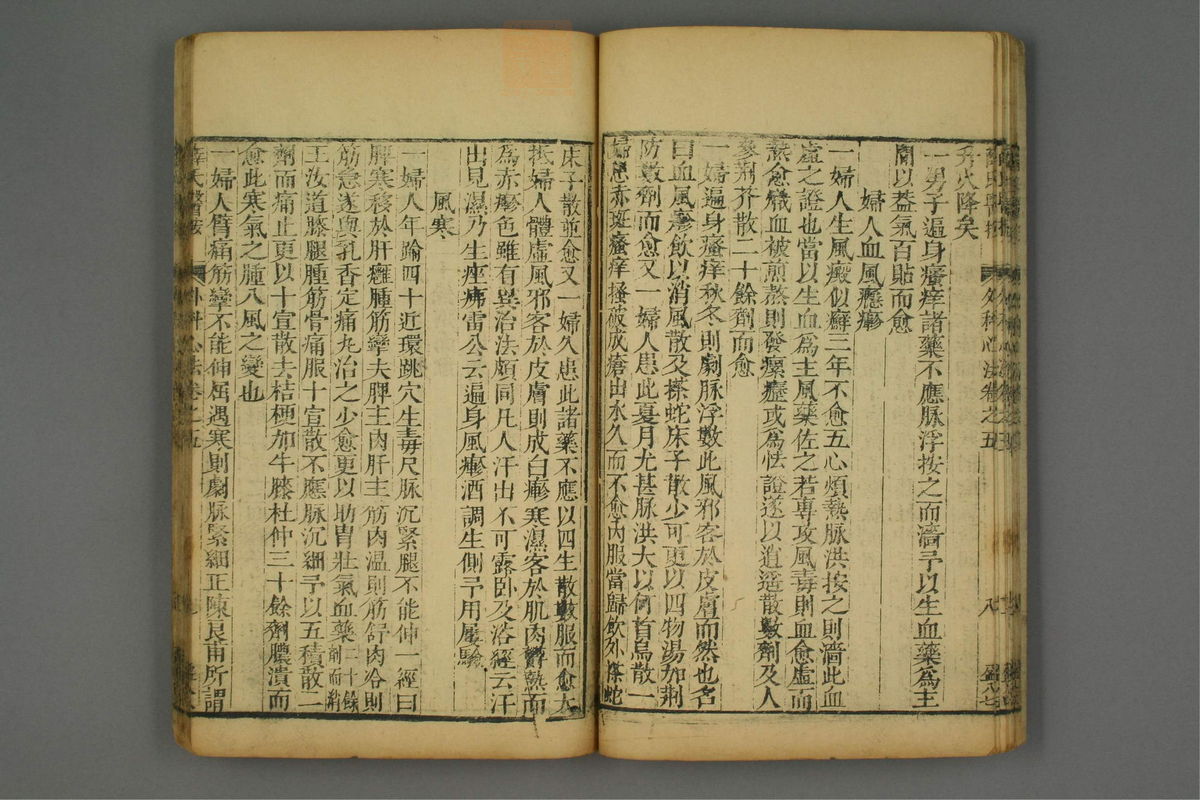 外科心法卷之五
升火降矣
一男子遍身瘙痒諸藥不應脉浮按之而濇予以生血藥爲主
間以益氣百貼而愈
婦人血風癮瘮
一婦人生風癜似癬三年不愈五心煩熱脉洪按之則濇此血
虛之證也當以生血爲主風藥佐之若專攻風毒則血愈虛而
熱愈熾血被煎熬則發瘰癧或爲怯證遂以逍遥散數劑及人
參荆芥散二十餘劑而愈
一婦遍身瘙痒秋冬則劇脉浮數此風邪客於皮膚而然也名
曰血風瘮飲以消風散及搽蛇床子散少可更以四物湯加荆
防數劑而愈又一婦人患此夏月尤甚脉洪大以何首烏散一
婦患赤斑瘙痒搔破成瘡出水久而不愈内服當歸飲外搽蛇
床子散並愈又一婦久患此諸藥不應以四生散數服而愈大
抵婦人體虛風邪客於皮膚則成白瘮寒濕客於肌肉欝熱而
為赤瘮色雖有異治法頗同凡人汗出不可露卧及浴經云汗
出見濕乃生痤疿雷公云遍身風瘮酒調生側予用屢驗
風寒
一婦人年踰四十近環跳穴生毒尺脉沉緊腿不能伸一經曰
脾寒移於肝癰腫筋攣夫脾主肉肝主筋肉温則筋舒肉冷則
筋急遂與乳香定痛丸治之少愈更以助胃壯氣血藥二十餘劑而消
王汝道膝腿腫筋骨痛服十宣散不應脉沉細予以五積散二
劑而痛止更以十宣散去桔梗加牛膝杜仲三十餘劑膿潰而
愈此寒氣之腫八風之變也
一婦人臂痛筋攣不能伸屈遇寒則劇脉緊細正陳良甫所謂
薛氏醫按 外科心法卷之五